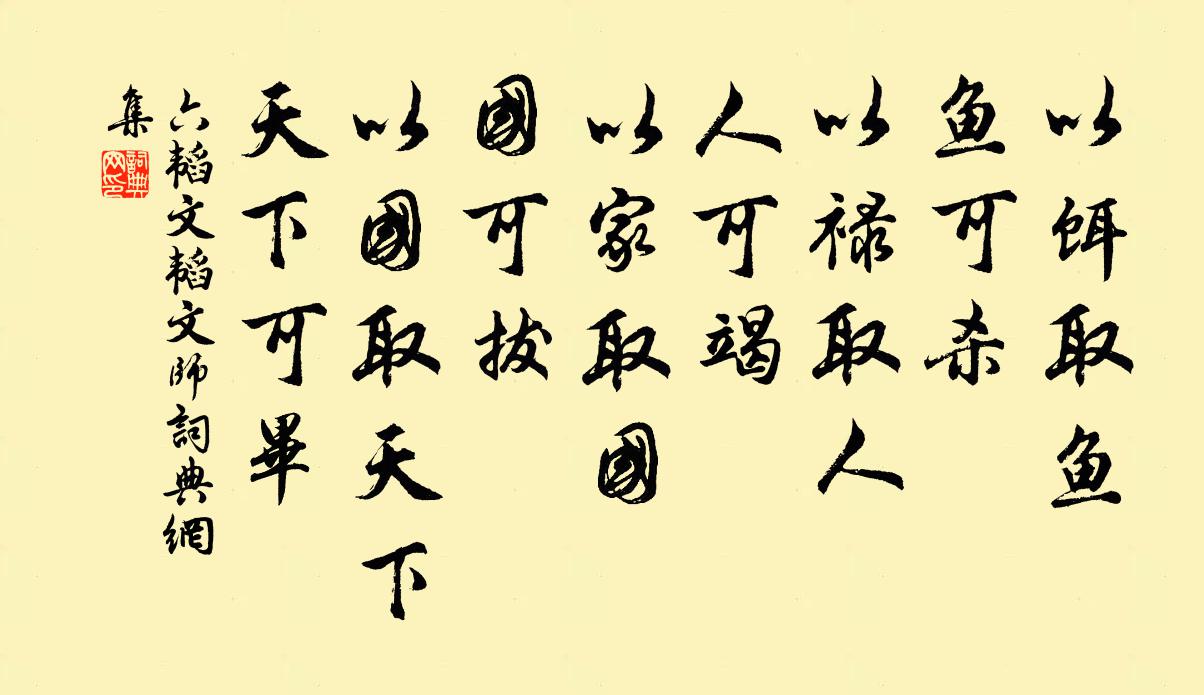 以饵取鱼
鱼可杀
以禄取人
人可竭
以家取國
國可拔
以國取天下
天下可畢
六韬文韬文师詞典網
集
詞典网印